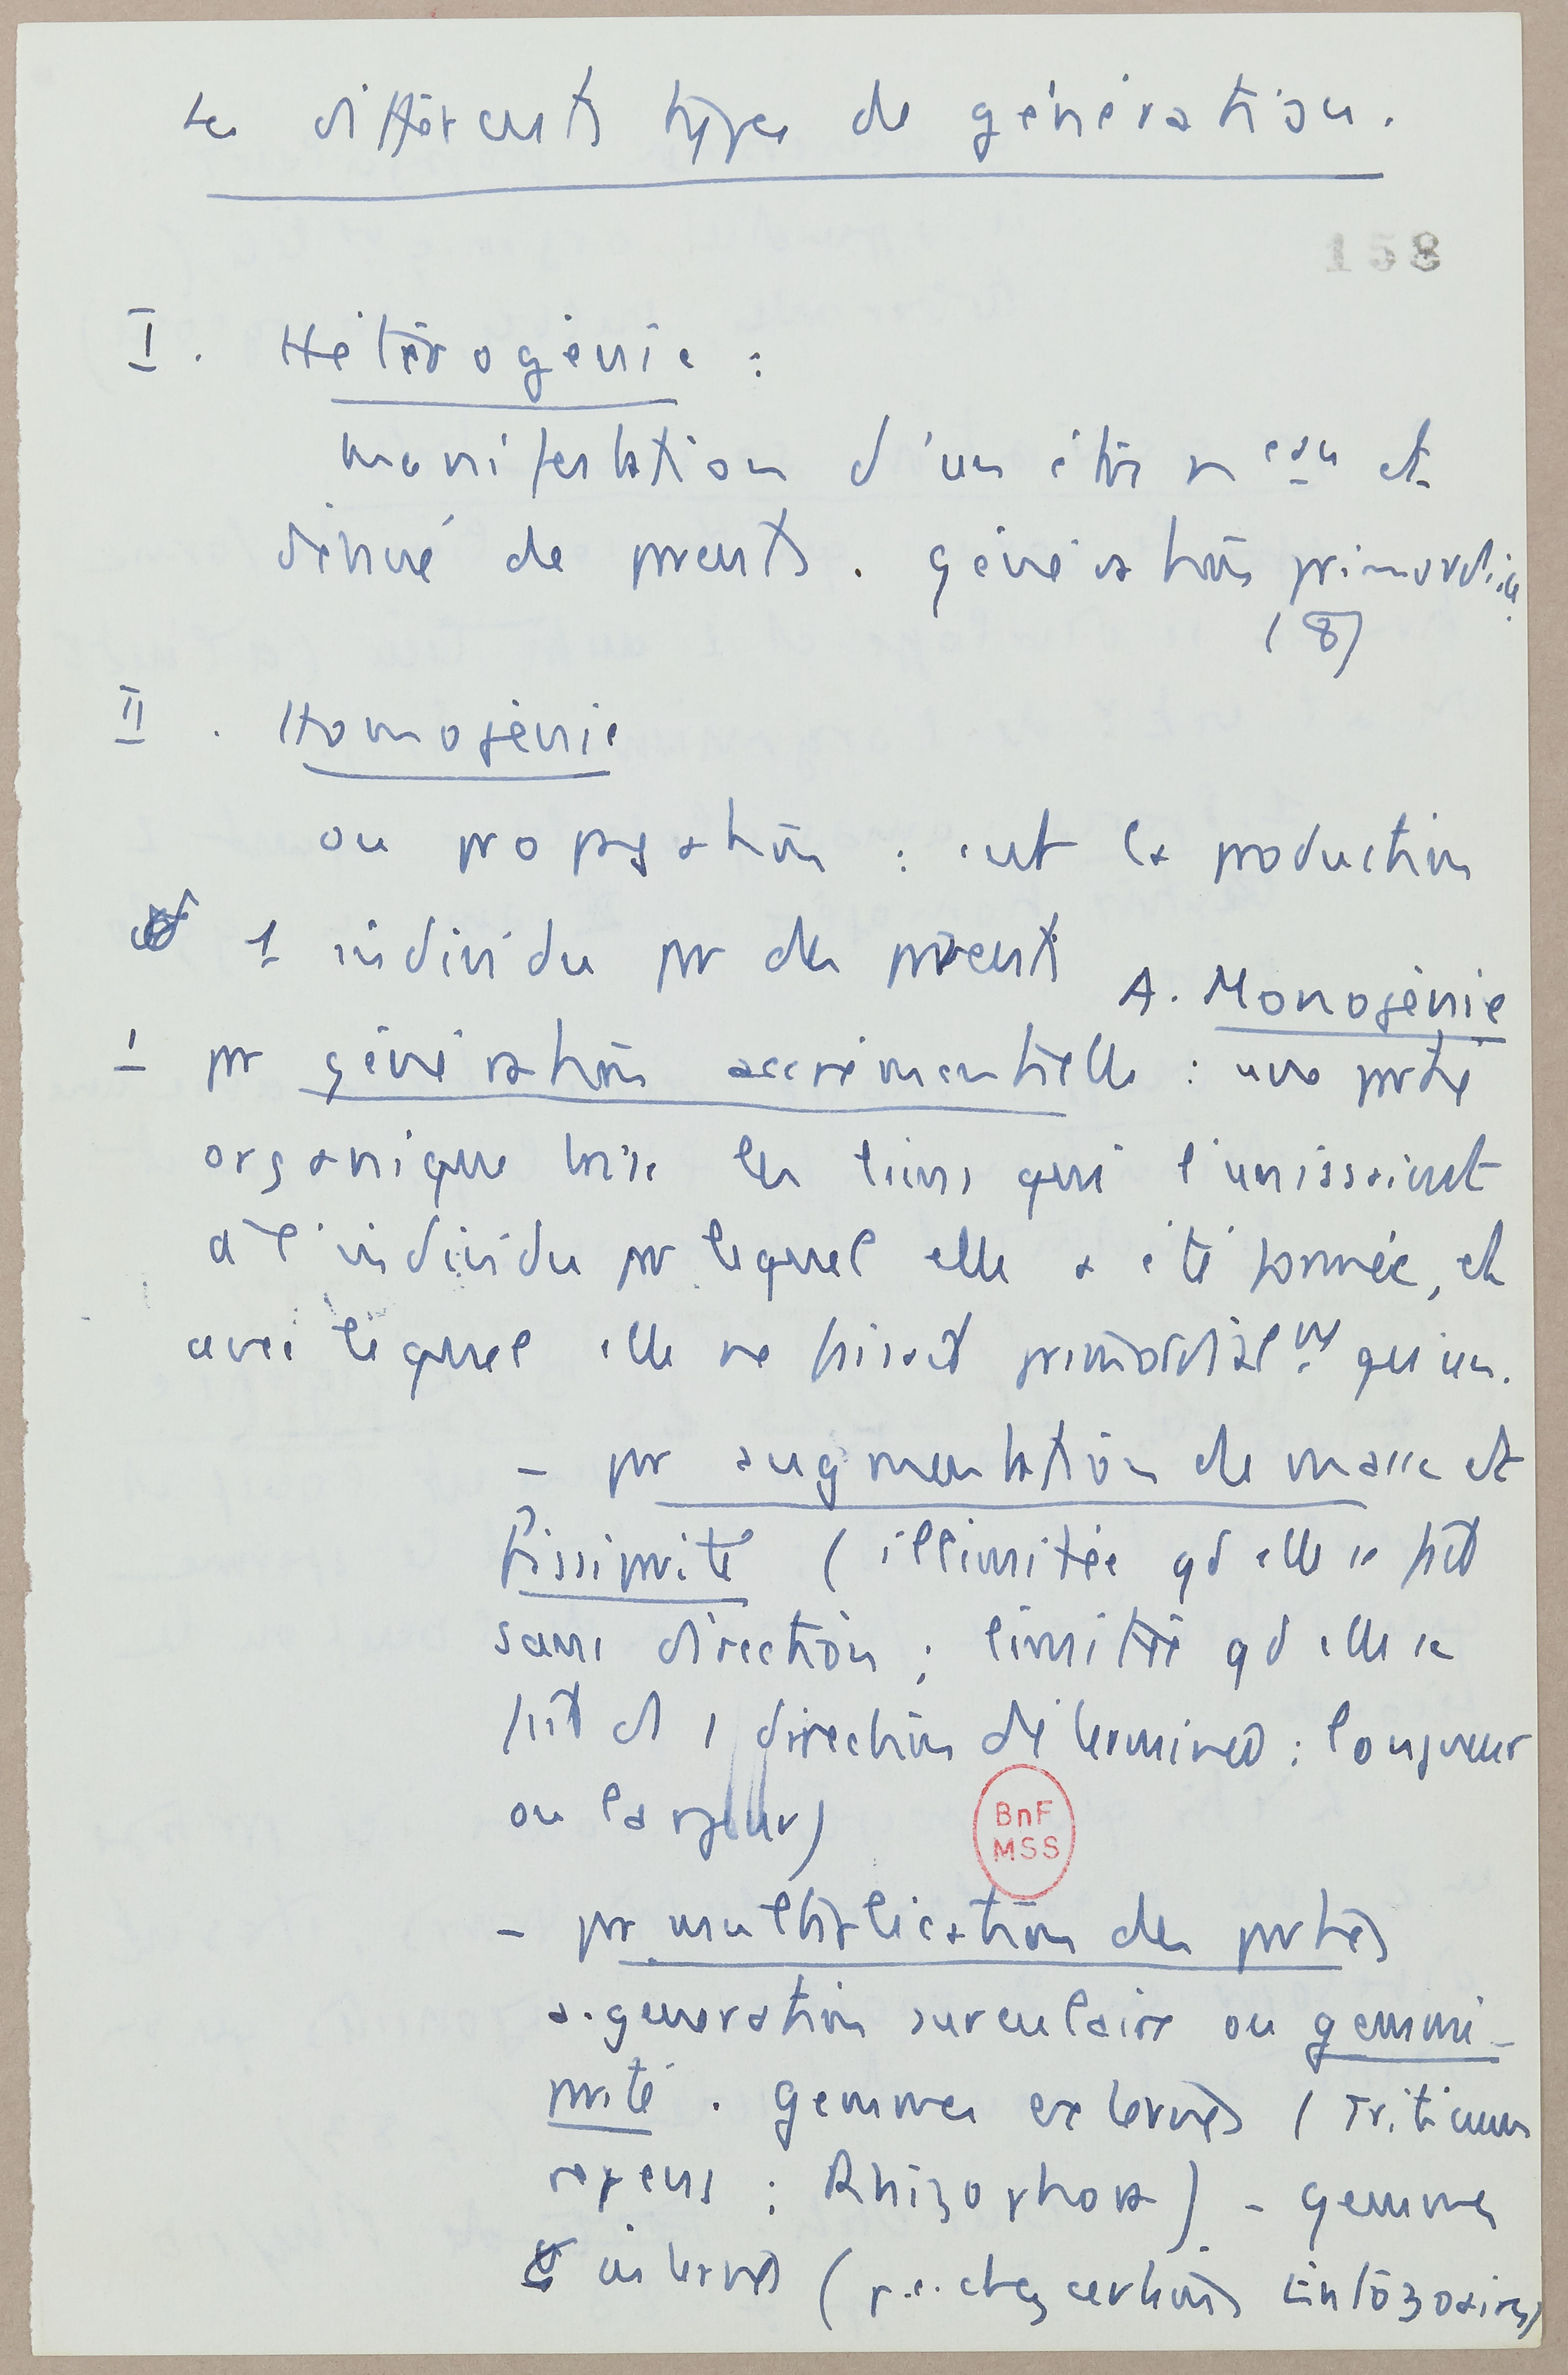 Les différents types de génération.
158
I. Hétérogénie :
manifestation d'un être nveau et
dénué de parents. génération primordiale
(8)
II. Homogénie
ou propagation : c'est la production
d' 1 individu par des parents
A. Monogénie
1 pr génération accrémentielle : une partie
organique brise les liens qui l'unissaient
à l'individu pr lequel elle a été formée, et
avec lequel elle ne faisait primordialmt qu'un.
- pr augmentation de masse et
fissiparité (illimitée qd elle se fait
sans direction ; limitée qd elle se
fait ds 1 direction déterminée : longueur
ou largeur)
BnF
MSS
- pr multiplication des parties
a. generation surculaire ou gemmi-
parité. Gemmes externes (Triticum
repens ; Rhizophora) - gemmes
internes (p.e. chez certains Entozoaires)